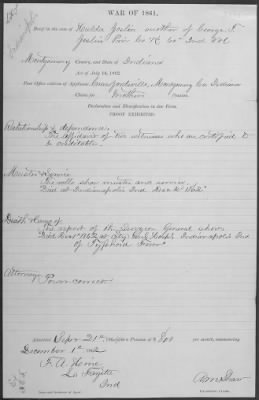 WAR OF 1861.
Brief in the case of Huldah Joslin mother of George F.
Joslin Priv. Co K 60" Ind Vol
Montgomery County, and State of Indiana
Act of July 14, 1862.
Post Office address of Applicant: Crawfordsville, Montgomery Co. Indiana
Claim for Mothers
Declaration and Identification in due Form.
PROOF EXHIBITED.
Relationship & dependance.
The affidavit of two witnesses who are certified to
be creditable.
Muster & service
The rolls show muster and service.
Died at Indianapolis Ind
Death & Cause of
The report of the Surgeon General shows
City Gen'l Hosp'l Indianapolis Ind
of Typhoid Fever
Attorney
Power correct
Admitted 21st to a Pension of $8.00 per month, commencing
December 1st
La Fayette
Ind